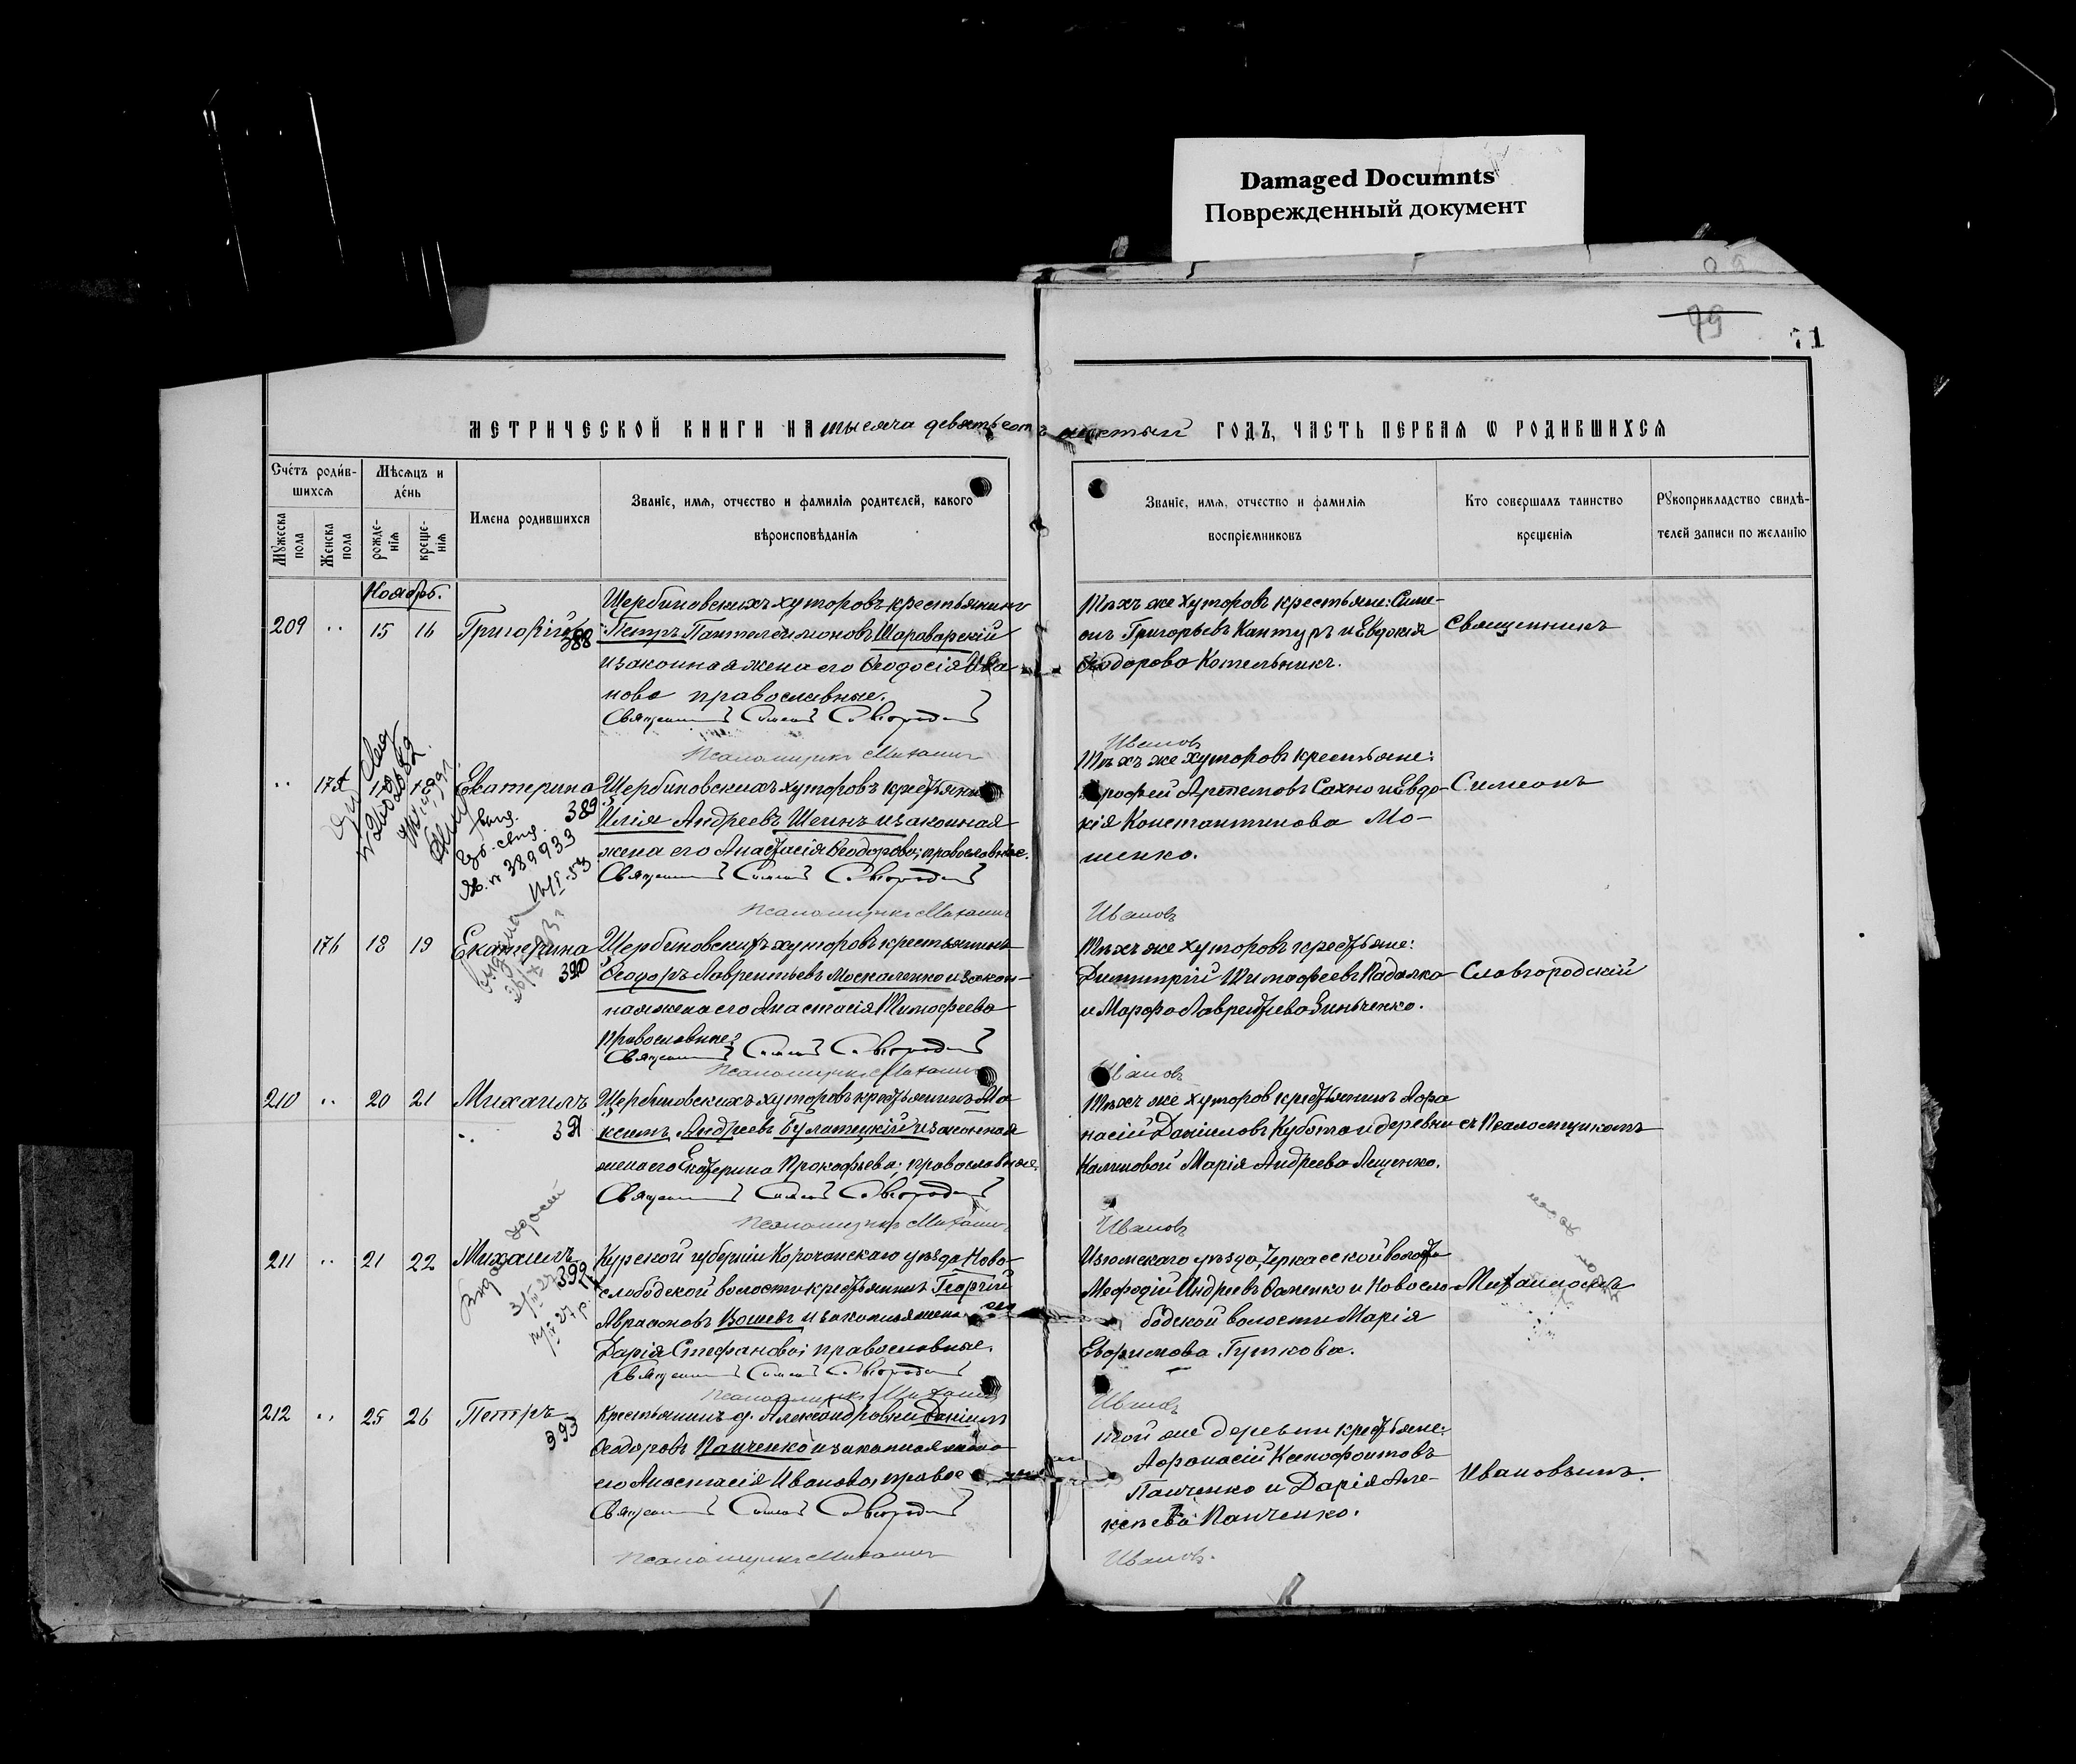 Damaged Documnts
Поврежденный документ
79
71
МЕТРИЧЕСКОЙ КНИГИ НА тысяча девятьсотъ шестый ГОДЪ, ЧАСТЬ ПЕРВАЯ Ѡ РОДИВШИХСЯ
Счетъ родившихся
Мѣсяцъ и день
Мужеска пола
Женска пола
рожденія
крещенія
Имена родившихся
Званіе, имя, отчество и фамилія родителей, какого вѣроисповѣданія
Званіе, имя, отчество и фамилія воспріемниковъ
Кто совершалъ таинство крещенія
Рукоприкладство свидѣтелей записи по желанію
Ноябрь.
209 " 15 16 Григорій 388
Щербиновскихъ хуторовъ крестьянинъ
Петръ Пантелеимоновъ Шароварскій
и законная жена его Ѳеодосія Ива-
нова православные.
Священникъ Симеонъ Славгородскій
Псаломщикъ Михаилъ Ивановъ
Тѣхъ же хуторовъ крестьяне: Симе-
онъ Григорьевъ Кантуръ и Евдокія
Ѳеодорова Котельникъ.
Священникъ
" 175 17 18 Екатерина 389
Щербиновскихъ хуторовъ крестьянинъ
Илія Андреевъ Шеинъ и законная
жена его Анастасія Ѳеодорова; православные.
Священникъ Симеонъ Славгородскій
Псаломщикъ Михаилъ Ивановъ
Тѣхъ же хуторовъ крестьяне:
Ерофей Артемовъ Сахно и Евдо-
кія Константинова Мо-
шенко.
Симеонъ
176 18 19 Екатерина 390
Щербиновскихъ хуторовъ крестьянинъ
Ѳеодоръ Лаврентьевъ Москаленко и закон-
ная жена его Анастасія Тимофеева
православные.
Священникъ Симеонъ Славгородскій
Псаломщикъ Михаилъ Ивановъ
Тѣхъ же хуторовъ крестьяне:
Димитрій Тимофеевъ Падалка
и Марфа Лаврентьева Зинченко.
Славгородскій
210 " 20 21 Михаилъ 391
Щербиновскихъ хуторовъ крестьянинъ Ма-
ксимъ Андреевъ Булатецкій и законная
жена его Екатерина Прокофьева; православные.
Священникъ Симеонъ Славгородскій
Псаломщикъ Михаилъ Ивановъ
Тѣхъ же хуторовъ крестьянинъ Афа-
насій Даніиловъ Кубата и деревни
Калиновой Марія Андреева Лещенко.
съ Псаломщикомъ
211 " 21 22 Михаилъ 392
Курской губерніи Корочанскаго уѣзда Ново-
слободской волости крестьянинъ Георгій
Авраамовъ Вошевъ и законная жена его
Дарія Стефанова; православные.
Священникъ Симеонъ Славгородскій
Псаломщикъ Михаилъ Ивановъ
Изюмскаго уѣзда, Черкасской волости
Мефодій Андреевъ и Новосло-
бодской волости Марія
Ефимова Гуткова.
Михаиломъ
212 " 25 26 Петръ 393
Крестьянинъ д. Александровки Даніилъ
Ѳеодоровъ Панченко и законная жена
его Анастасія Иванова, правос
Священникъ Симеонъ Славгородскій
Псаломщикъ Михаилъ Ивановъ.
Той же деревни крестьяне:
Афанасій Ксенофонтовъ
Панченко и Дарія Але-
ксѣева Панченко.
Ивановымъ.